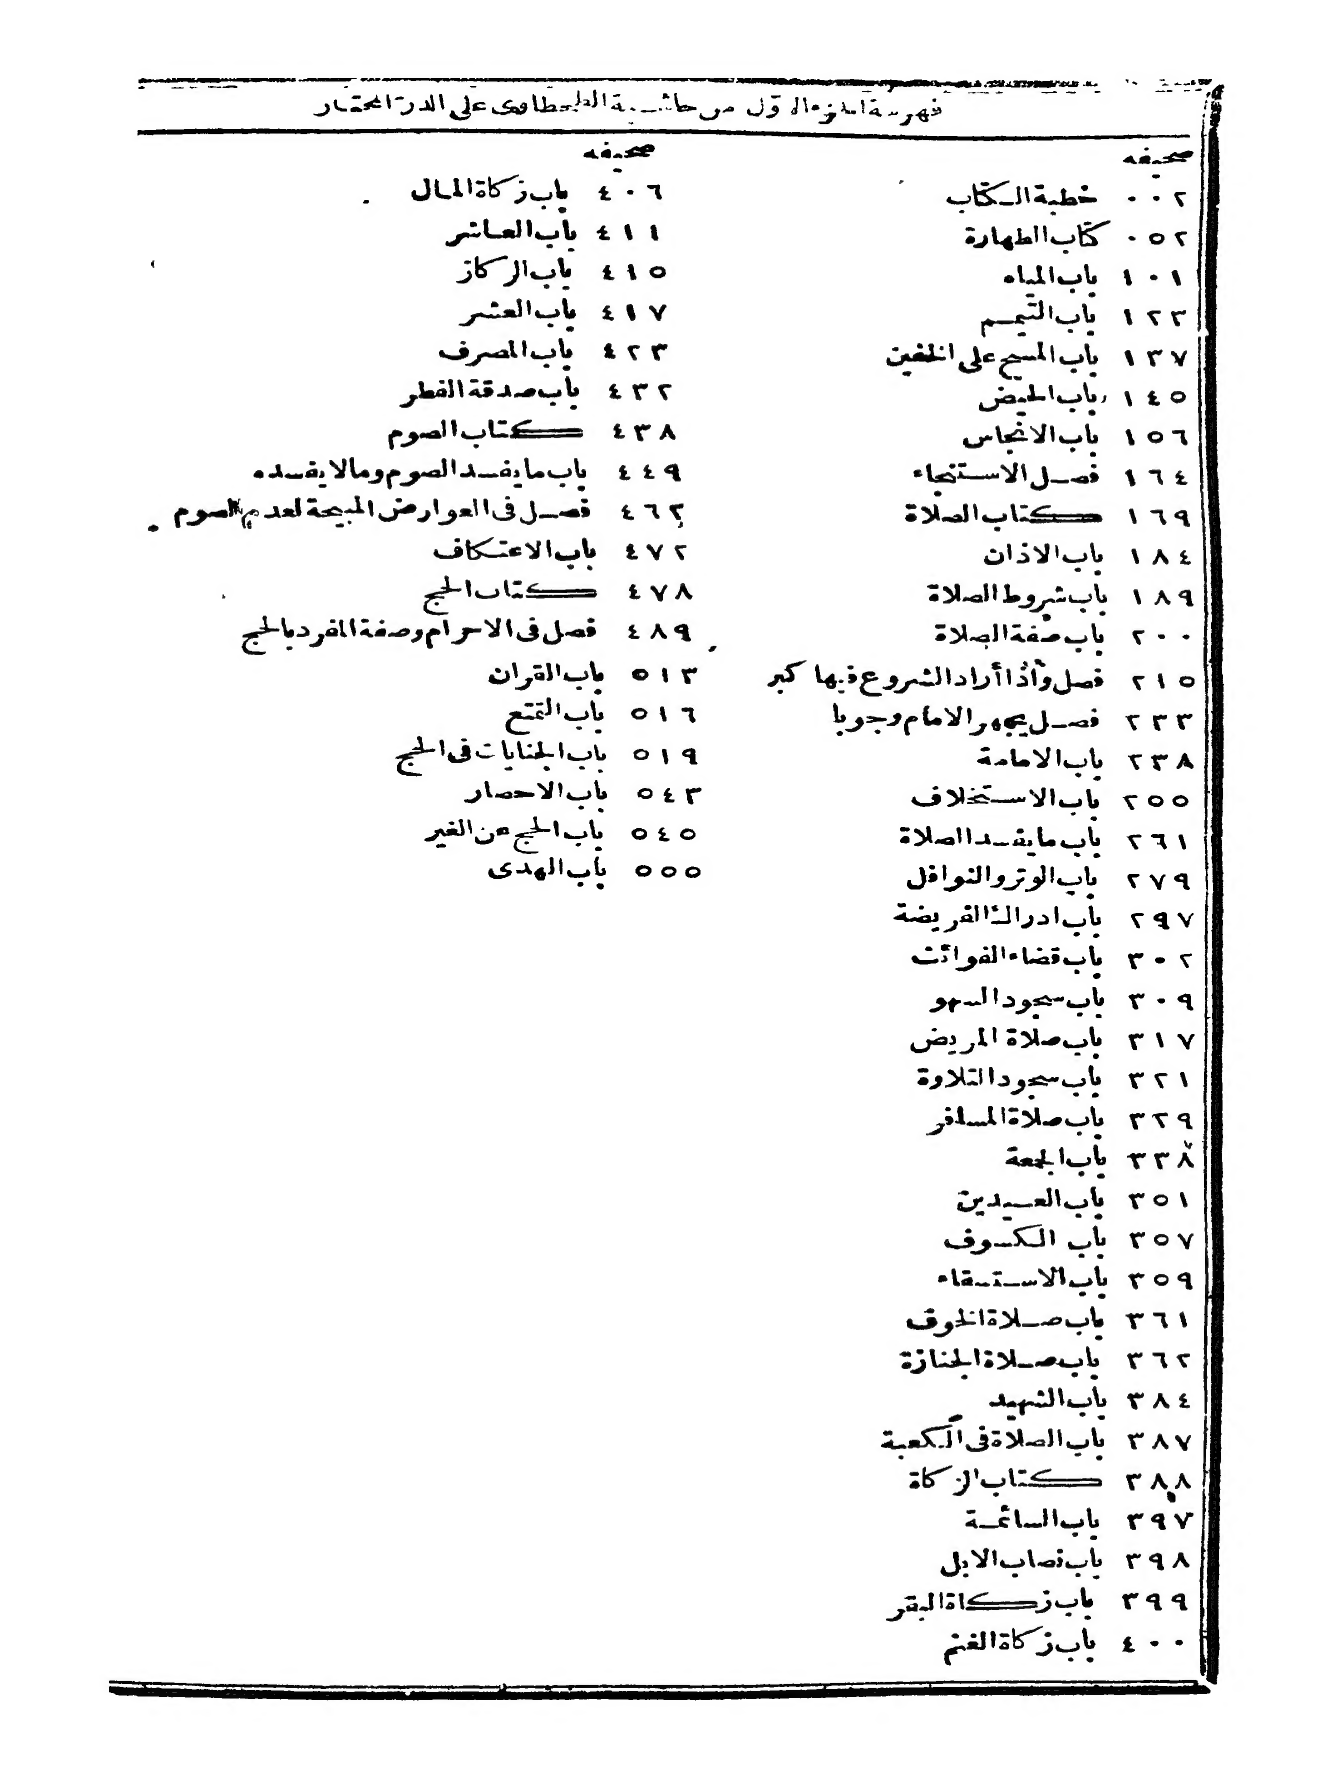 فهرسة الجزء الاول من حاشية الطحطاوى على الدر المختار
صحيفه
٠٠٢ خطبة الكتاب
٠٥٢ كتاب الطهارة
١٠١ باب المياه
١٢٣ باب التيمم
١٣٧ باب المسح على الخفين
١٤٥ باب الحيض
١٥٦ باب الانجاس
١٦٤ فصل الاستنجاء
١٦٩ كتاب الصلاة
١٨٤ باب الاذان
١٨٩ باب شروط الصلاة
٢٠٠ باب صفة الصلاة
٢١٥ فصل واذا أراد الشروع فيها كبر
٢٣٣ فصل يجهر الامام وجوبا
٢٣٨ باب الامامة
٢٥٥ باب الاستخلاف
٢٦١ باب ما يفسد الصلاة
٢٧٩ باب الوتر والنوافل
٢٩٧ باب ادراك الفريضة
٣٠٢ باب قضاء الفوائت
٣٠٩ باب سجود السهو
٣١٧ باب صلاة المريض
٣٢١ باب سجود التلاوة
٣٢٩ باب صلاة المسافر
٣٣٨ باب الجمعة
٣٥١ باب العيدين
٣٥٧ باب الكسوف
٣٥٩ باب الاستسقاء
٣٦١ باب صلاة الخوف
٣٦٢ باب صلاة الجنازة
٣٨٤ باب الشهيد
٣٨٧ باب الصلاة فى الكعبة
٣٨٨ كتاب الزكاة
٣٩٧ باب السائمة
٣٩٨ باب نصاب الابل
٣٩٩ باب زكاة البقر
٤٠٠ باب زكاة الغنم
صحيفه
٤٠٦ باب زكاة المال
٤١١ باب العاشر
٤١٥ باب الركاز
٤١٧ باب العشر
٤٢٣ باب المصرف
٤٣٢ باب صدقة الفطر
٤٣٨ كتاب الصوم
٤٤٩ باب ما يفسد الصوم ومالا يفسده
٤٦٢ فصل فى العوارض المبيحة لعدم الصوم
٤٧٢ باب الاعتكاف
٤٧٨ كتاب الحج
٤٨٩ فصل فى الاحرام وصفة المفرد بالحج
٥١٣ باب القران
٥١٦ باب التمتع
٥١٩ باب الجنايات فى الحج
٥٤٣ باب الاحصار
٥٤٥ باب الحج عن الغير
٥٥٥ باب الهدى